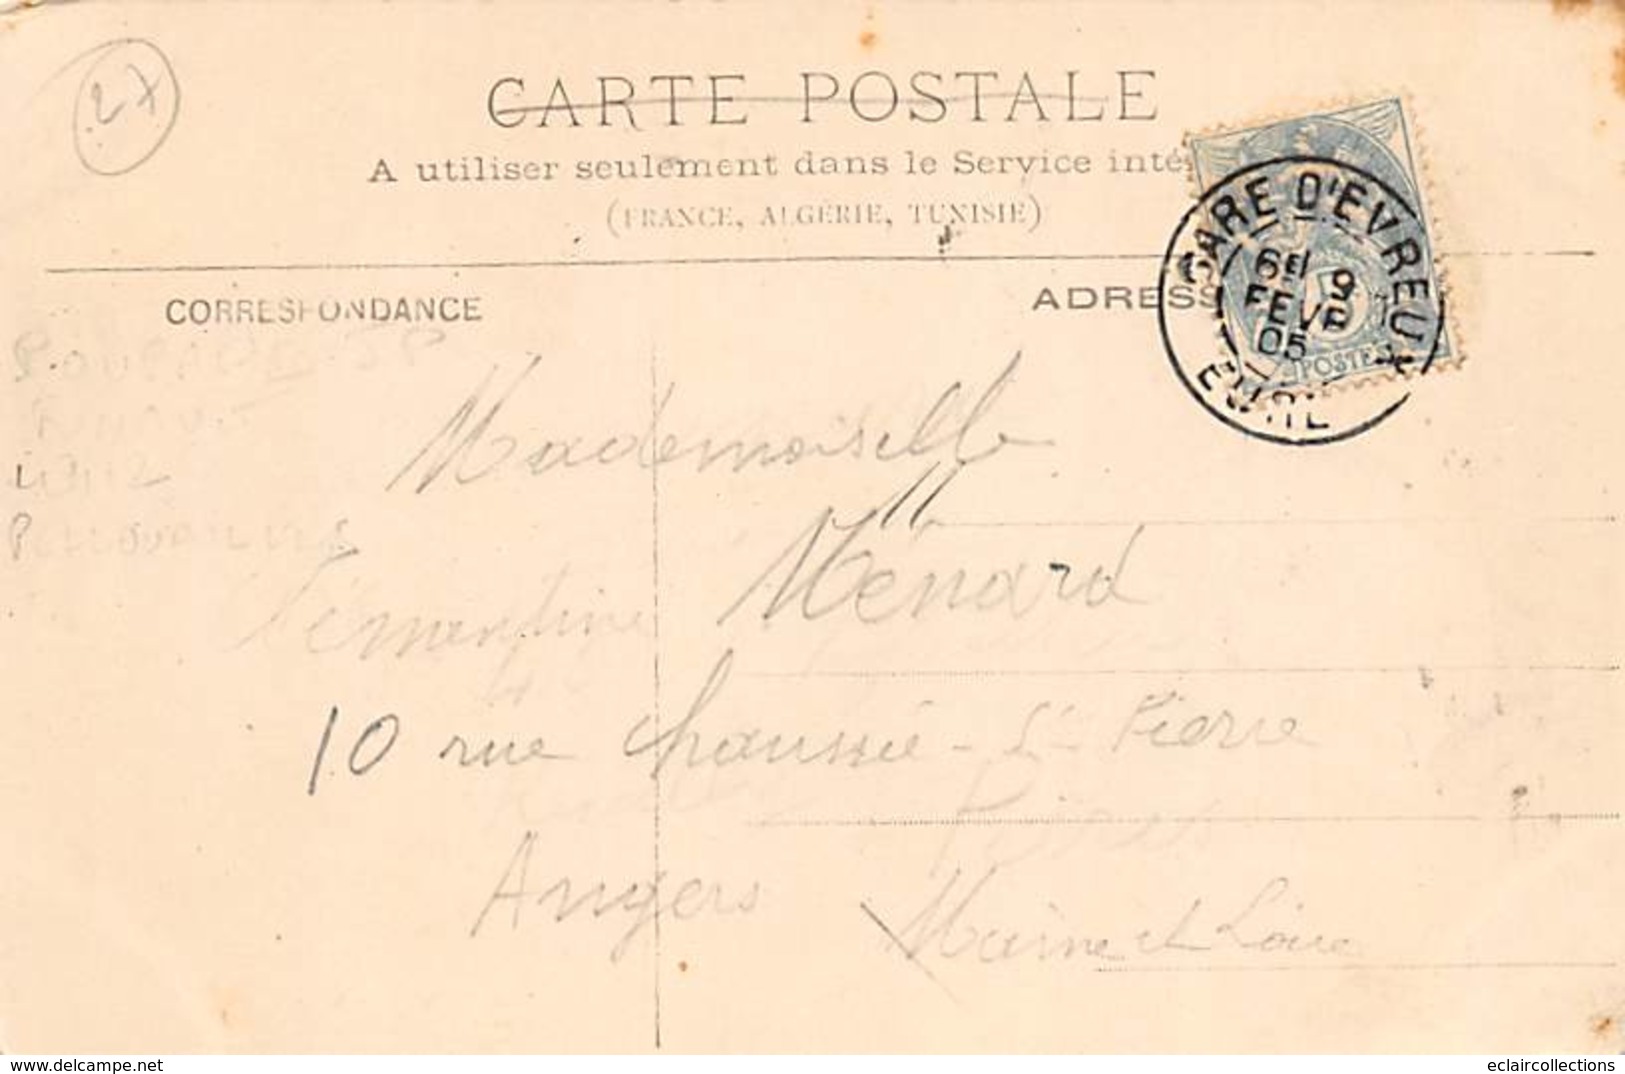 27
CARTE POSTALE
A utiliser seulement dans le Service inté
(FRANCE, ALGÉRIE, TUNISIE)
GARE D'EVREUX
6E 9
FEVR
05
EURE
POSTES
CORRESPONDANCE
ADRESS
Mademoiselle
Ménard
10 rue Chaussée - St Pierre
Angers
Maine et Loire
www.delcampe.net
eclaircollections